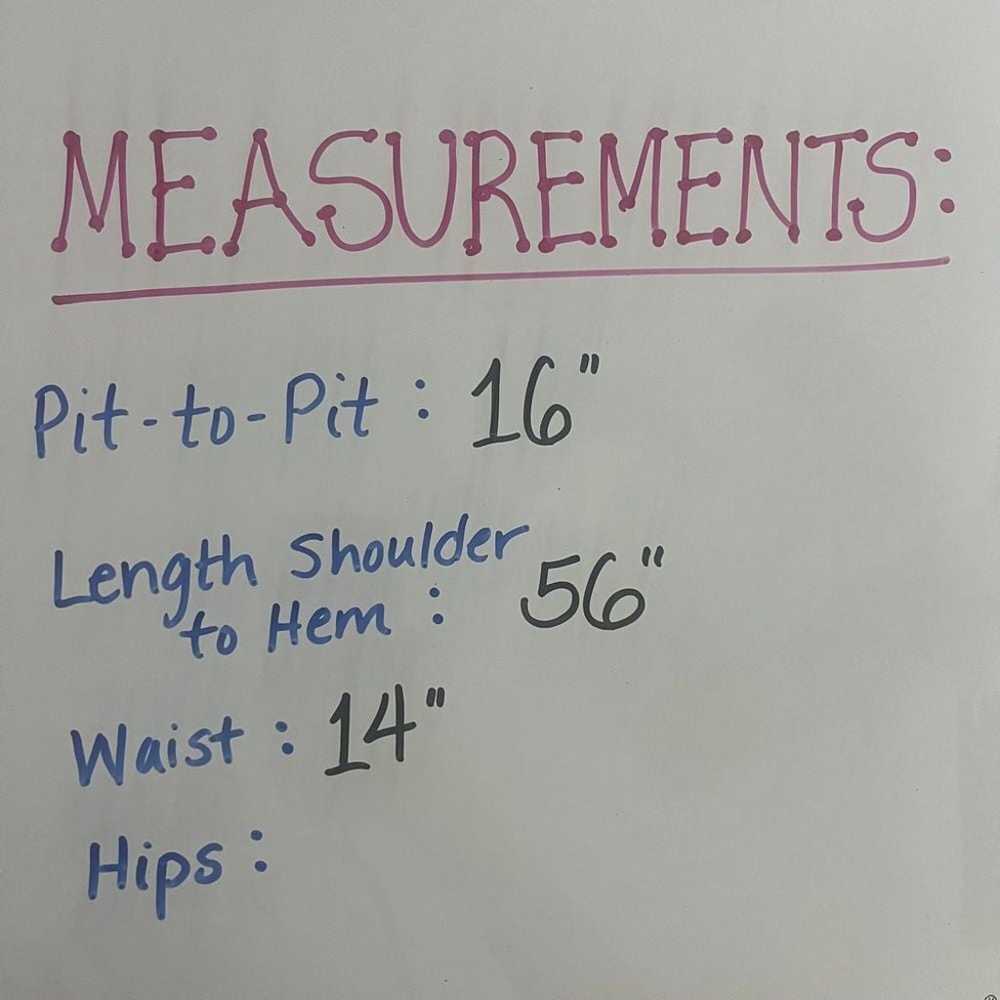 MEASUREMENTS:
Pit-to-Pit : 16"
Length Shoulder
to Hem : 56"
Waist : 14"
Hips :